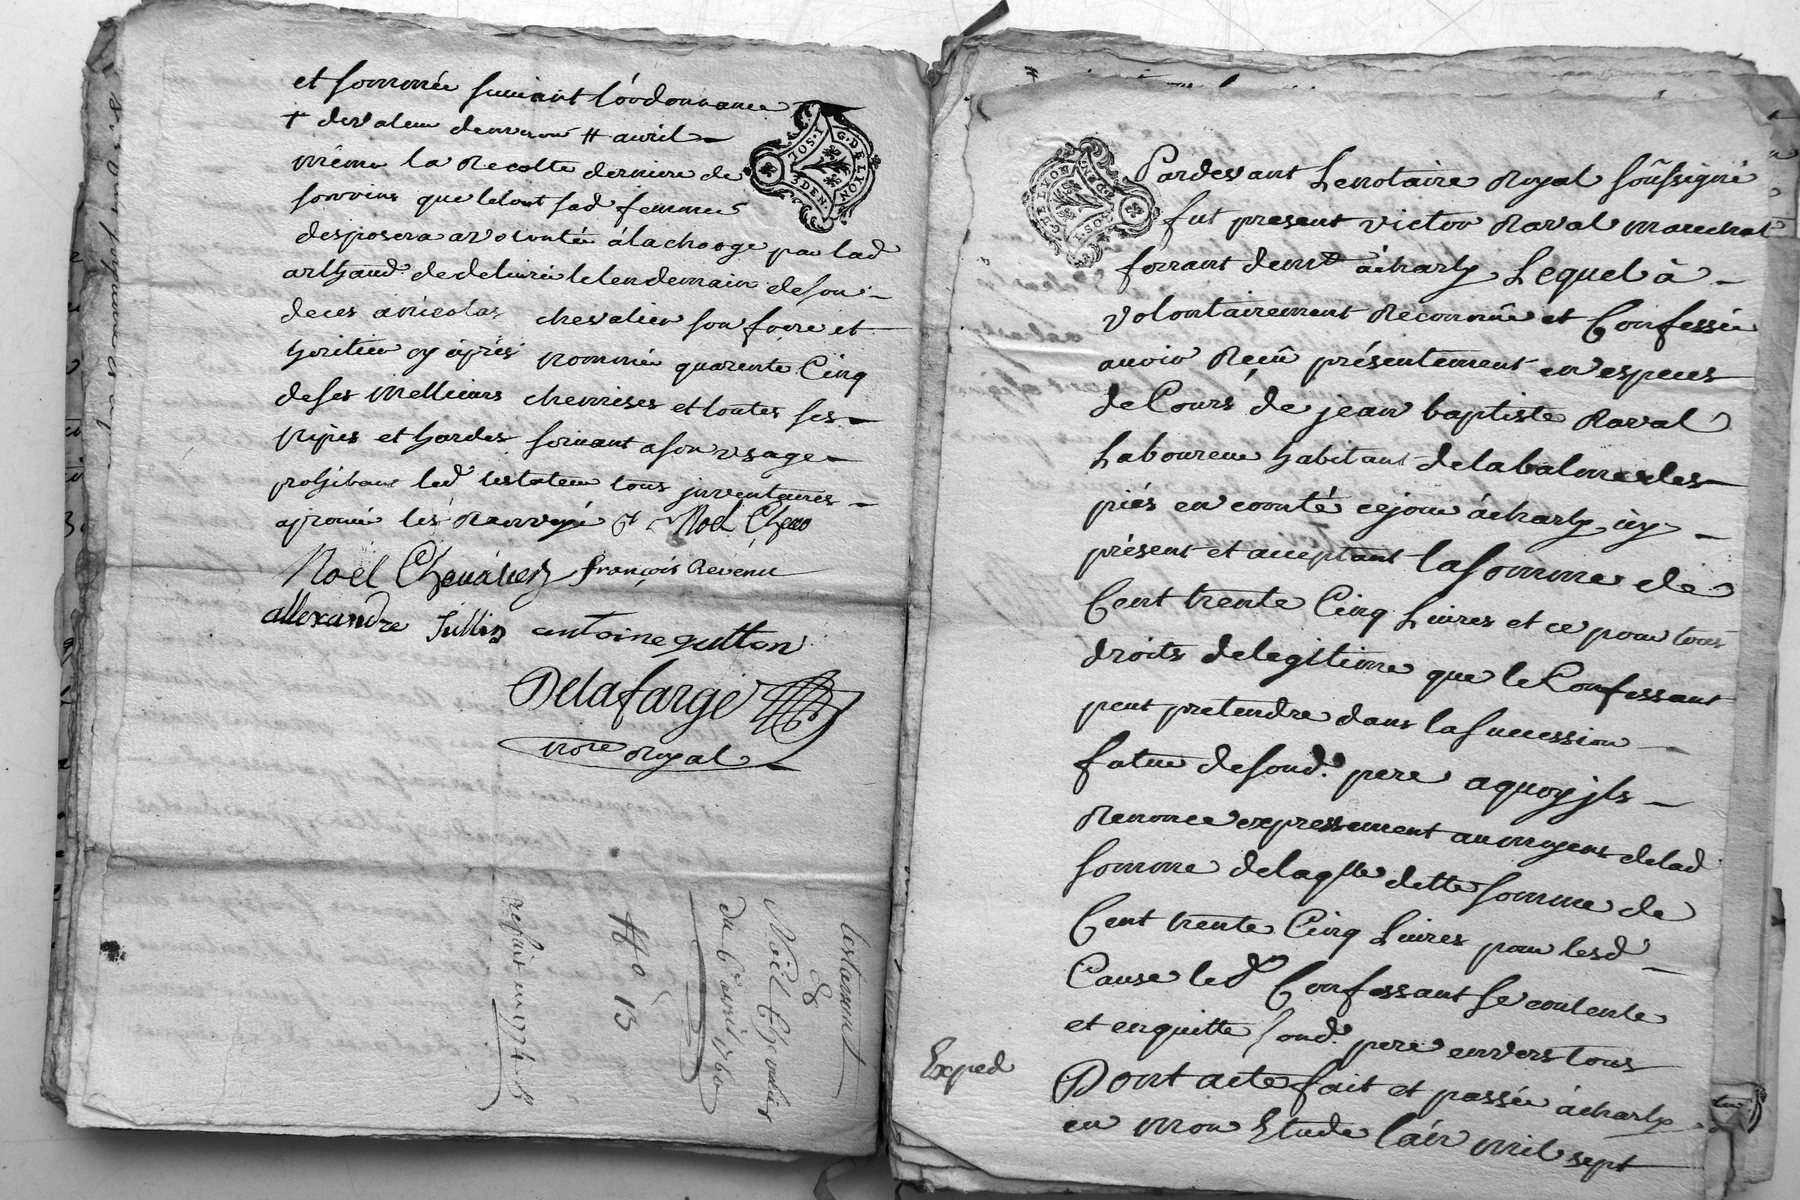 et sommée suivant l'ordonnance
+ de valeur denviron # avril
même la Recolte derniere de
son vins que le tout sad femme
desposera a volontée á la charge par lad
arthaud de delivré le lendemain de son
deces a nicolas chevalier son frere et
heritier cy après nommée quarente Cinq
de ses Mellieurs chemises et toutes ses
nipes et hardes servant a son usage
prohibant led testateur tous inventaires
aprouvé les Renvoye Noël Chero
Noël Chevalier françois Revenu
allexandre Jullin antoine gutton
Delafarge
nore Royal
testament
de
Noël Chevalier
du 6e avril 1760
13
refait en 1774
G. DE LYON
SOL
DEN.
Pardevant Le notaire Royal soûssigné
fut present victor Raval marechal
ferrant demt à charly Lequel à
volontairement Reconnûe et Confessée
avoir Reçû présentement en especes
de Cours de jean baptiste Raval
Laboureur habitant de la balme des
piés en comté cejour à charly icy
présent et acceptant la somme de
Cent trente Cinq Livres et ce pour tous
droits de legitime que le Confessant
peut pretendre dans la Succession
future de sond. pere a quoy jls
Renonce expressement au moyens de lad
somme de laqlle ditte somme de
Cent trente Cinq Livres pour lesd
Cause led Confessant se contente
et en quitte sond. pere envers tous
Dont acte fait et passée à charly
en mon Etude l'an mil sept
Exped
G DE LYON
SOL
DEN